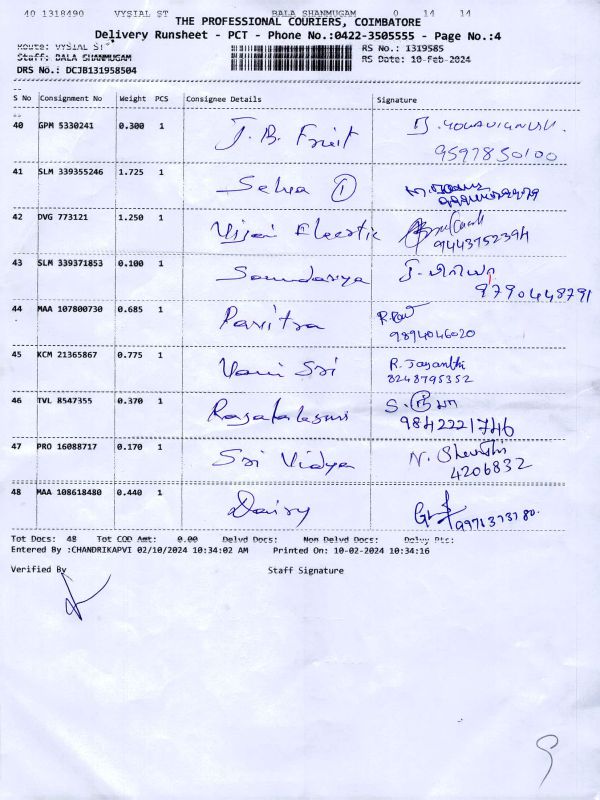 40 1318490 VYSIAL ST BALA SHANMUGAM 0 14 14
THE PROFESSIONAL COURIERS, COIMBATORE
Delivery Runsheet - PCT - Phone No.:0422-3505555 - Page No.:4
Route: VYSIAL ST RS No.: 1319585
Staff: BALA SHANMUGAM RS Date: 10-Feb-2024
DRS No.: DCJB131958504
S No Consignment No Weight PCS Consignee Details Signature
40 GPM 5330241 0.300 1 J.B. Fruit
9597850100
41 SLM 339355246 1.725 1 Selva 1
42 DVG 773121 1.250 1 Vijai Electric
9443752394
43 SLM 339371853 0.100 1 Soundarya
9790448791
44 MAA 107800730 0.685 1 Pavitra
9894046020
45 KCM 21365867 0.775 1 Vani Sri R. Jayanthi
8248795352
46 TVL 8547355 0.370 1 Rajatalaxmi
9842221746
47 PRO 16088717 0.170 1 Sri Vidya
4206832
48 MAA 108618480 0.440 1 Dairy
Tot Docs: 48 Tot COD Amt: 0.00 Delvd Docs: Non Delvd Docs: Delvy Ptc:
Entered By :CHANDRIKAPVI 02/10/2024 10:34:02 AM Printed On: 10-02-2024 10:34:16
Verified By Staff Signature